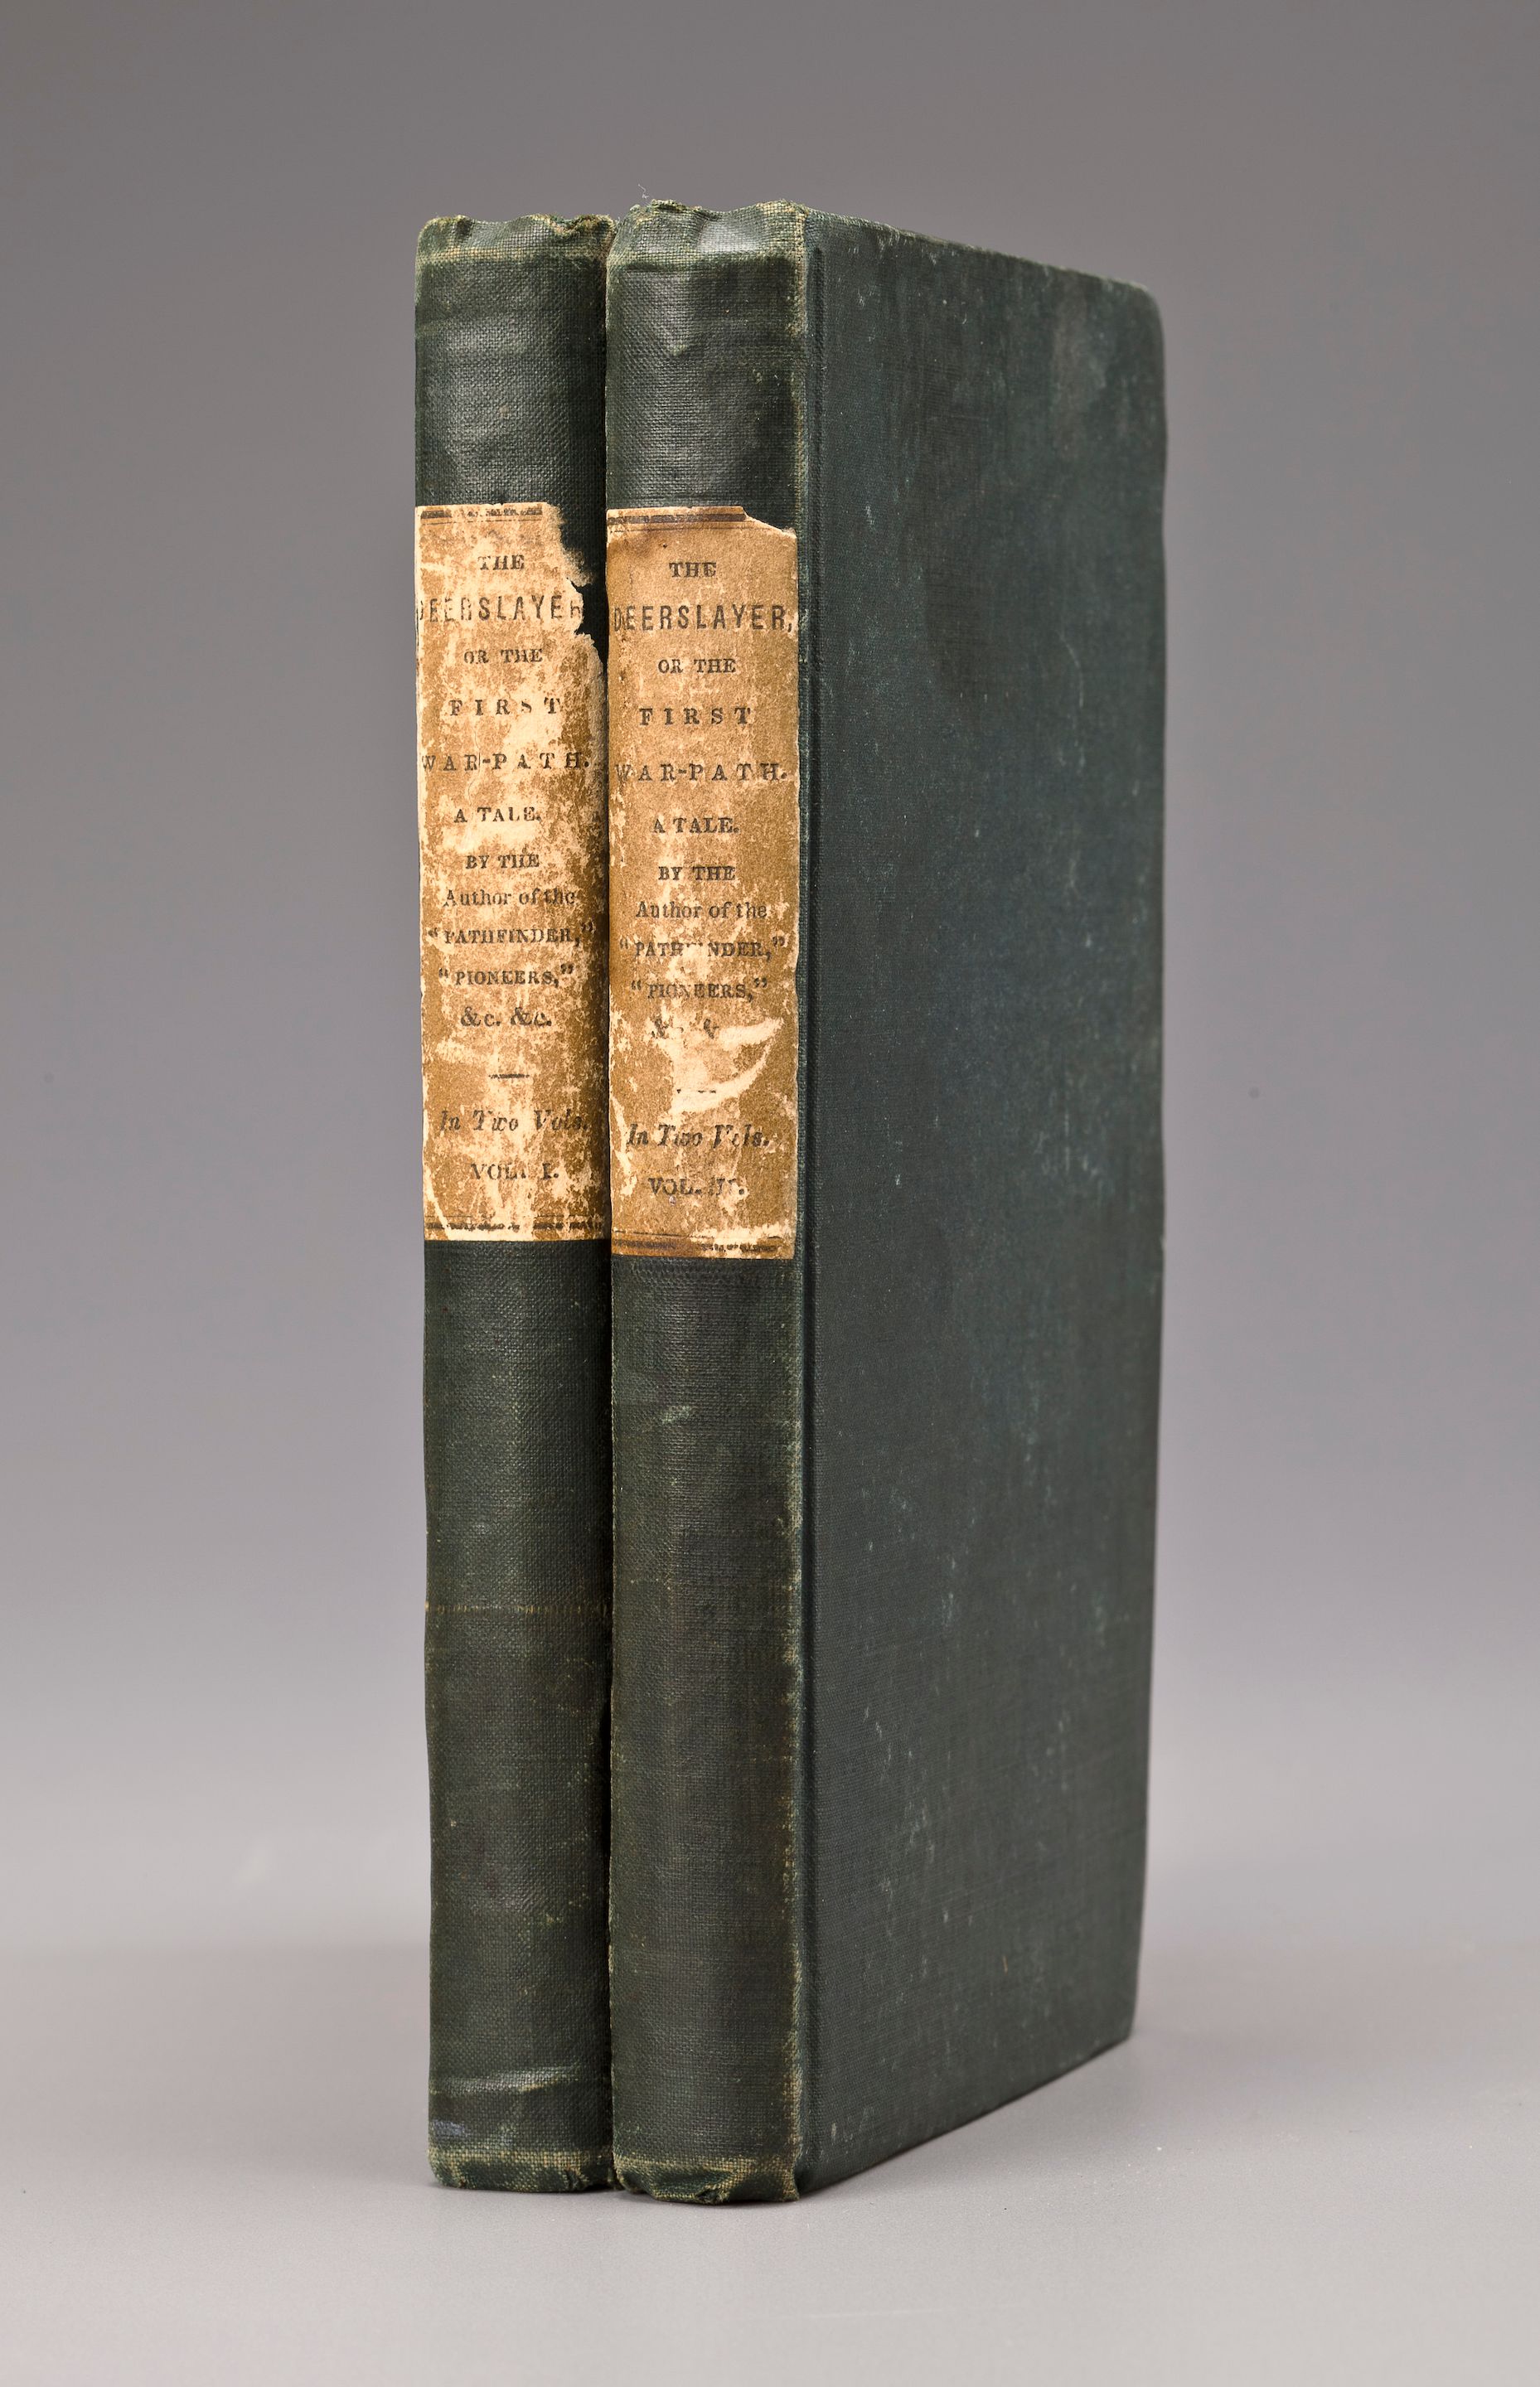 THE
DEERSLAYER
OR THE
FIRST
WAR-PATH.
A TALE.
BY THE
Author of the
"PATHFINDER,"
"PIONEERS,"
&c. &c.
In Two Vols.
VOL. I.
THE
DEERSLAYER,
OR THE
FIRST
WAR-PATH.
A TALE.
BY THE
Author of the
"PATHFINDER,"
"PIONEERS,"
In Two Vols.
VOL. II.